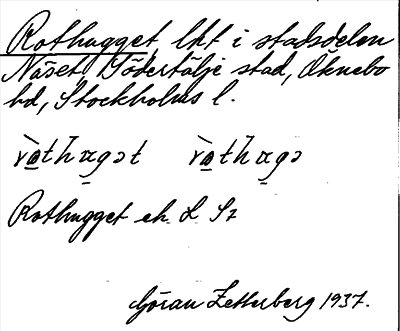 Rothugget, lht i stadsdelen
Näset, Södertälje stad, Öknebo
hd, Stockholms l.
Rothugget ek. L Sz
Göran Zetterberg 1937.